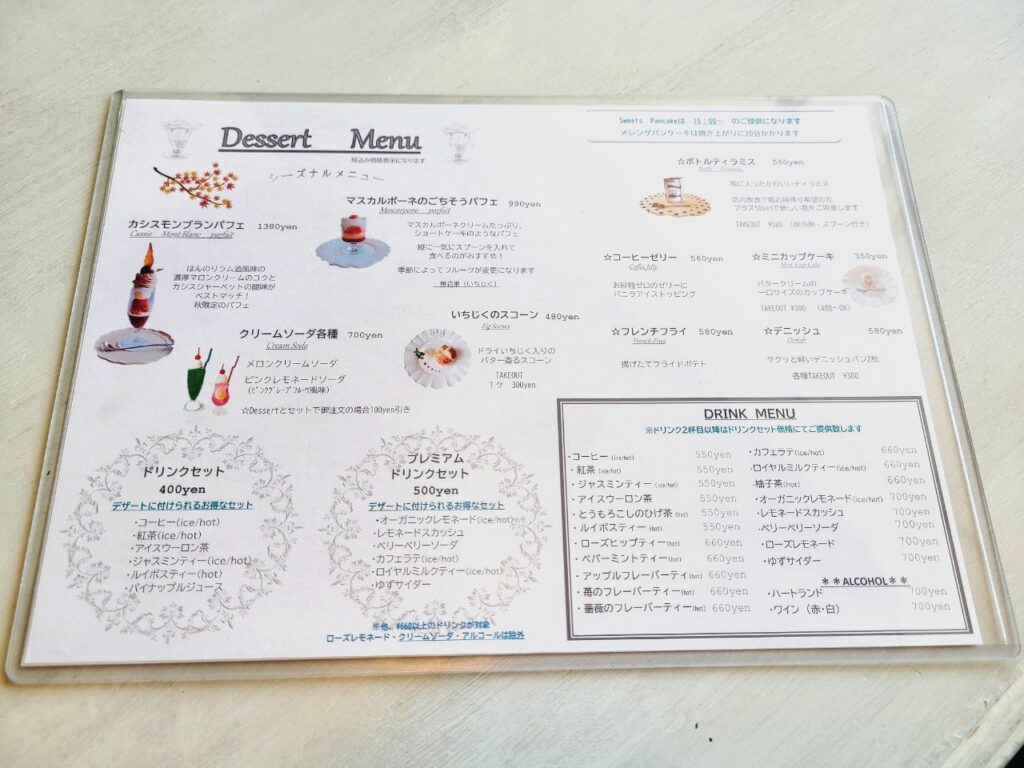 Dessert Menu
税込み価格表示になります
シーズナルメニュー
カシスモンブランパフェ 1380yen
Cassis Mont Blanc parfait
ほんのりラム酒風味の
濃厚マロンクリームのコクと
カシスシャーベットの酸味が
ベストマッチ!
秋限定のパフェ
マスカルポーネのごちそうパフェ 990yen
Mascarpone parfait
マスカルポーネクリームたっぷり、
ショートケーキのようなパフェ
縦に一気にスプーンを入れて
食べるのがおすすめ!
季節によってフルーツが変更になります
無花果(いちじく)
クリームソーダ各種 700yen
Cream Soda
メロンクリームソーダ
ピンクレモネードソーダ
(ピンクグレープフルーツ風味)
☆Dessertとセットで御注文の場合100yen引き
いちじくのスコーン 480yen
Fig Scones
ドライいちじく入りの
バター香るスコーン
TAKEOUT
1ケ 300yen
Sweets Pancakeは 15:00~ のご提供になります
メレンゲパンケーキは焼き上がりに20分かかります
☆ボトルティラミス 560yen
Bottle Tiramisu
瓶に入ったかわいいティラミス
店内飲食で瓶お持帰り希望の方、
プラス50yenで新しい瓶をご用意します
TAKEOUT ¥580 (保冷剤・スプーン付き)
☆コーヒーゼリー 560yen
Coffee Jelly
お砂糖ゼロのゼリーに
バニラアイストッピング
☆ミニカップケーキ 350yen
Mini Cup Cake
バタークリームの
一口サイズのカップケーキ
TAKEOUT ¥300 (4個~OK)
☆フレンチフライ 580yen
French Fries
揚げたてフライドポテト
☆デニッシュ 580yen
Denish
サクッと軽いデニッシュパン2枚
各種TAKEOUT ¥300
ドリンクセット
400yen
デザートに付けられるお得なセット
・コーヒー(ice/hot)
・紅茶(ice/hot)
・アイスウーロン茶
・ジャスミンティー(ice/hot)
・ルイボスティー(hot)
・パイナップルジュース
プレミアム
ドリンクセット
500yen
デザートに付けられるお得なセット
・オーガニックレモネード(ice/hot)
・レモネードスカッシュ
・ベリーベリーソーダ
・カフェラテ(ice/hot)
・ロイヤルミルクティー(ice/hot)
・ゆずサイダー
※他、¥660以上のドリンクが対象
ローズレモネード・クリームソーダ・アルコールは除外
DRINK MENU
※ドリンク2杯目以降はドリンクセット価格にてご提供致します
・コーヒー(ice/hot) 550yen
・紅茶(ice/hot) 550yen
・ジャスミンティー(ice/hot) 550yen
・アイスウーロン茶 550yen
・とうもろこしのひげ茶(hot) 550yen
・ルイボスティー(hot) 550yen
・ローズヒップティー(hot) 660yen
・ペパーミントティー(hot) 660yen
・アップルフレーバーティ(hot) 660yen
・苺のフレーバーティー(hot) 660yen
・薔薇のフレーバーティー(hot) 660yen
・カフェラテ(ice/hot) 660yen
・ロイヤルミルクティー(ice/hot) 660yen
・柚子茶(hot) 660yen
・オーガニックレモネード(ice/hot) 700yen
・レモネードスカッシュ 700yen
・ベリーベリーソーダ 700yen
・ローズレモネード 700yen
・ゆずサイダー 700yen
**ALCOHOL**
・ハートランド 700yen
・ワイン(赤・白) 700yen